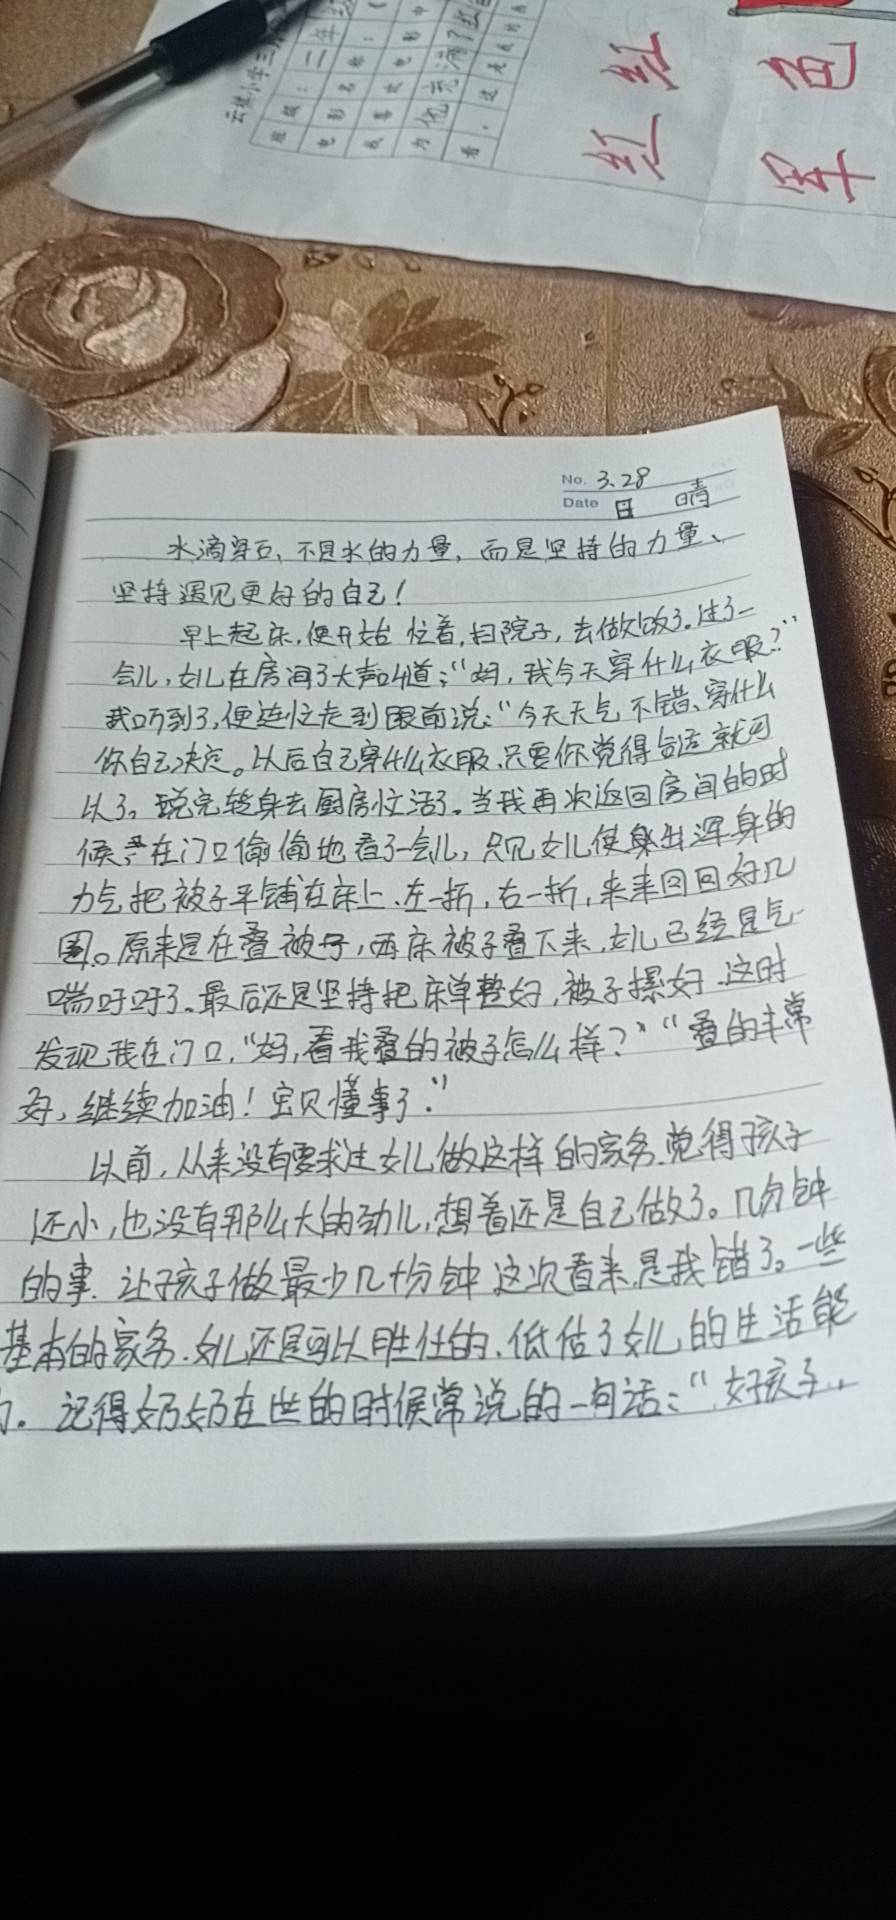 云
小学三
班级：二年级
电影名称：《
我喜欢电影中
为他充满了
看，这是我的画
红红
红色
军
No. 3.28
Date 日 晴
水滴穿石、不是水的力量，而是坚持的力量、
坚持遇见更好的自己！
早上起床，便开始忙着，扫院子，去做饭了。过了一
会儿，女儿在房间了大声叫道：“妈，我今天穿什么衣服？”
我听到了，便连忙走到跟前说：“今天天气不错、穿什么
你自己决定。以后自己穿什么衣服、只要你觉得合适就可
以了。说完转身去厨房忙活了。当我再次返回房间的时
候在门口偷偷地看了一会儿，只见女儿使出浑身的
力气把被子平铺在床上、左一折，右一折，来来回回好几
圈。原来是在叠被子，两床被子叠下来，女儿已经是气
喘吁吁了。最后还是坚持把床单整好，被子摞好、这时
发现我在门口，“妈，看我叠的被子怎么样？”“叠的非常
好，继续加油！宝贝懂事了.”
以前，从来没有要求过女儿做这样的家务、觉得孩子
还小，也没有那么大的劲儿，想着还是自己做了。几分钟
的事. 让孩子做最少几十分钟 这次看来，是我错了。一些
基本的家务、女儿还是可以胜任的、低估了女儿的生活能
力。记得奶奶在世的时候常说的一句话：“好孩子，